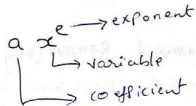 a x^e → exponent
→ variable
→ coefficient